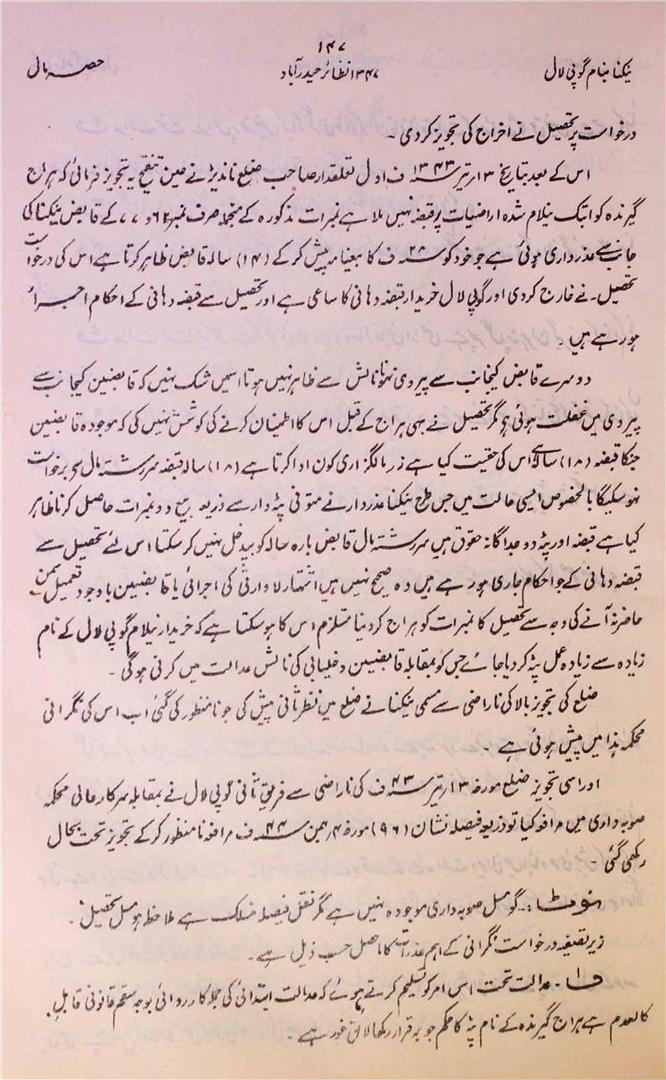 ۱۴۷
ٹیکنا بنام گوپی لال ۱۳۴۷ نظائر حیدرآباد حصہ مال
درخواست پر تحصیل نے اخراج کی تجویز کردی ۔
اس کے بعد بتاریخ ۱۳ر تیر سنہ ۱۳۴۳ ف اول تعلقدار صاحب ضلع ناندیڑ نے عین تنقیح یہ تجویز فرمائی کہ ہراج
گیرندہ کو ابتک نیلام شدہ اراضیات پر قبضہ نہیں ملا ہے نمبرات مذکورہ کے منجملہ صرف نمبر ۶۲ و ۷۷ کے قابض ٹیکنا کی
جانب سے عذرداری ہوئی ہے جو خود کو سنہ ۲۸ ف کا بیعنامہ پیش کرکے (۱۴) سالہ قابض ظاہر کرتا ہے اس کی درخواست
تحصیل ۔ نے خارج کردی اور گوپی لال خریدار قبضہ دہانی کا ساعی ہے اور تحصیل سے قبضہ دہانی کے احکام اجراء
ہورہے ہیں ۔
دوسرے قابض کیجانب سے پیروی نہونا نالش سے ظاہر نہیں ہوتا اسمیں شک نہیں کہ قابضین کیجانب سے
پیروی میں غفلت ہوئی ہو مگر تحصیل نے بھی ہراج کے قبل اس کا اطمینان کرنے کی کوشش نہیں کی کہ موجودہ قابضین
جنکا قبضہ (۱۸) سالہ ہے اس کی حقیت کیا ہے زر مالگزاری کون ادا کرتا ہے (۱۸) سالہ قبضہ سررشتہ مال سے برخواست
نہوسکیگا بالخصوص ایسی حالت میں جس طرح ٹیکنا عذردار نے متوفی پٹہ دار سے ذریعہ بیع دو نمبرات حاصل کرنا ظاہر
کیا ہے قبضہ اور پٹہ دو جداگانہ حقوق ہیں سررشتہ مال قابض بارہ سالہ کو بیدخل نہیں کرسکتا اس لئے تحصیل سے
قبضہ دہانی کے جو احکام جاری ہورہے ہیں وہ صحیح نہیں ہیں اشتہار لاوارثی کی اجرائی یا قابضین باوجود تعمیل سمن
حاضر نہ آنے کی وجہ سے تحصیل کا نمبرات کو ہراج کردینا مستلزم اس کا ہوسکتا ہے کہ خریدار نیلام گوپی لال کے نام
زیادہ سے زیادہ عمل پٹہ کردیا جائے جس کو بمقابلہ قابضین دخلیابی کی نالش عدالت میں کرنی ہوگی ۔
ضلع کی تجویز بالا کی ناراضی سے مسمی ٹیکنا نے ضلع میں نظرثانی پیش کی جو نامنظور کی گئی اب اس کی نگرانی
محکمہ ہذا میں پیش ہوئی ہے ۔
اور اسی تجویز ضلع مورخہ ۱۳ر تیر سنہ ۴۳ ف کی ناراضی سے فریق ثانی گوپی لال نے بمقابلہ سرکار عالی محکمہ
صوبہ داری میں مرافعہ کیا تو ذریعہ فیصلہ نشان (۹۶) مورخہ ۴ر بہمن سنہ ۴۴ ف مرافعہ نامنظور کرکے تجویز تحت بحال
رکھی گئی ۔
نوٹ :۔ گو مسل صوبہ داری موجود نہیں ہے مگر نقل فیصلہ منسلک ہے ملاحظہ ہو مسل تحصیل ۔
زیر تصفیہ درخواست نگرانی کے اہم عذرات کا ماحصل حسب ذیل ہے ۔
ف ۱ ۔ عدالت تحت اس امر کو تسلیم کرتے ہوئے کہ عدالت ابتدائی کی جملہ کارروائی بوجہ سقم قانونی قابل
کالعدم ہے ہراج گیرندہ کے نام پٹہ کا حکم جو برقرار رکھا لائق غور ہے ۔